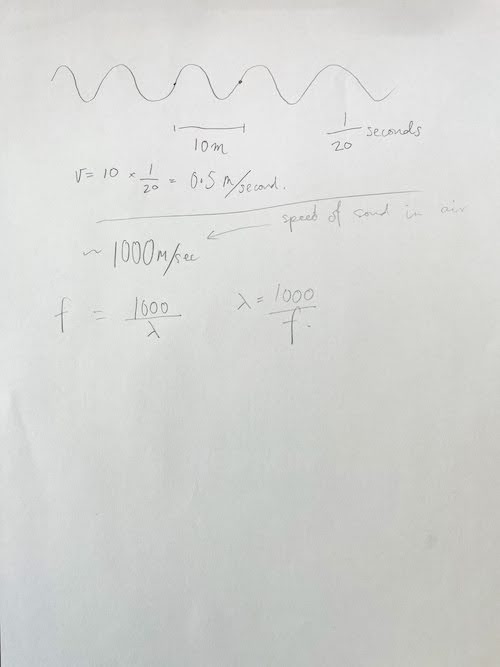 10m
1/20 seconds
v = 10 × 1/20 = 0.5 M/second.
speed of sond in air
~ 1000M/sec
f = 1000/λ
λ = 1000/f.